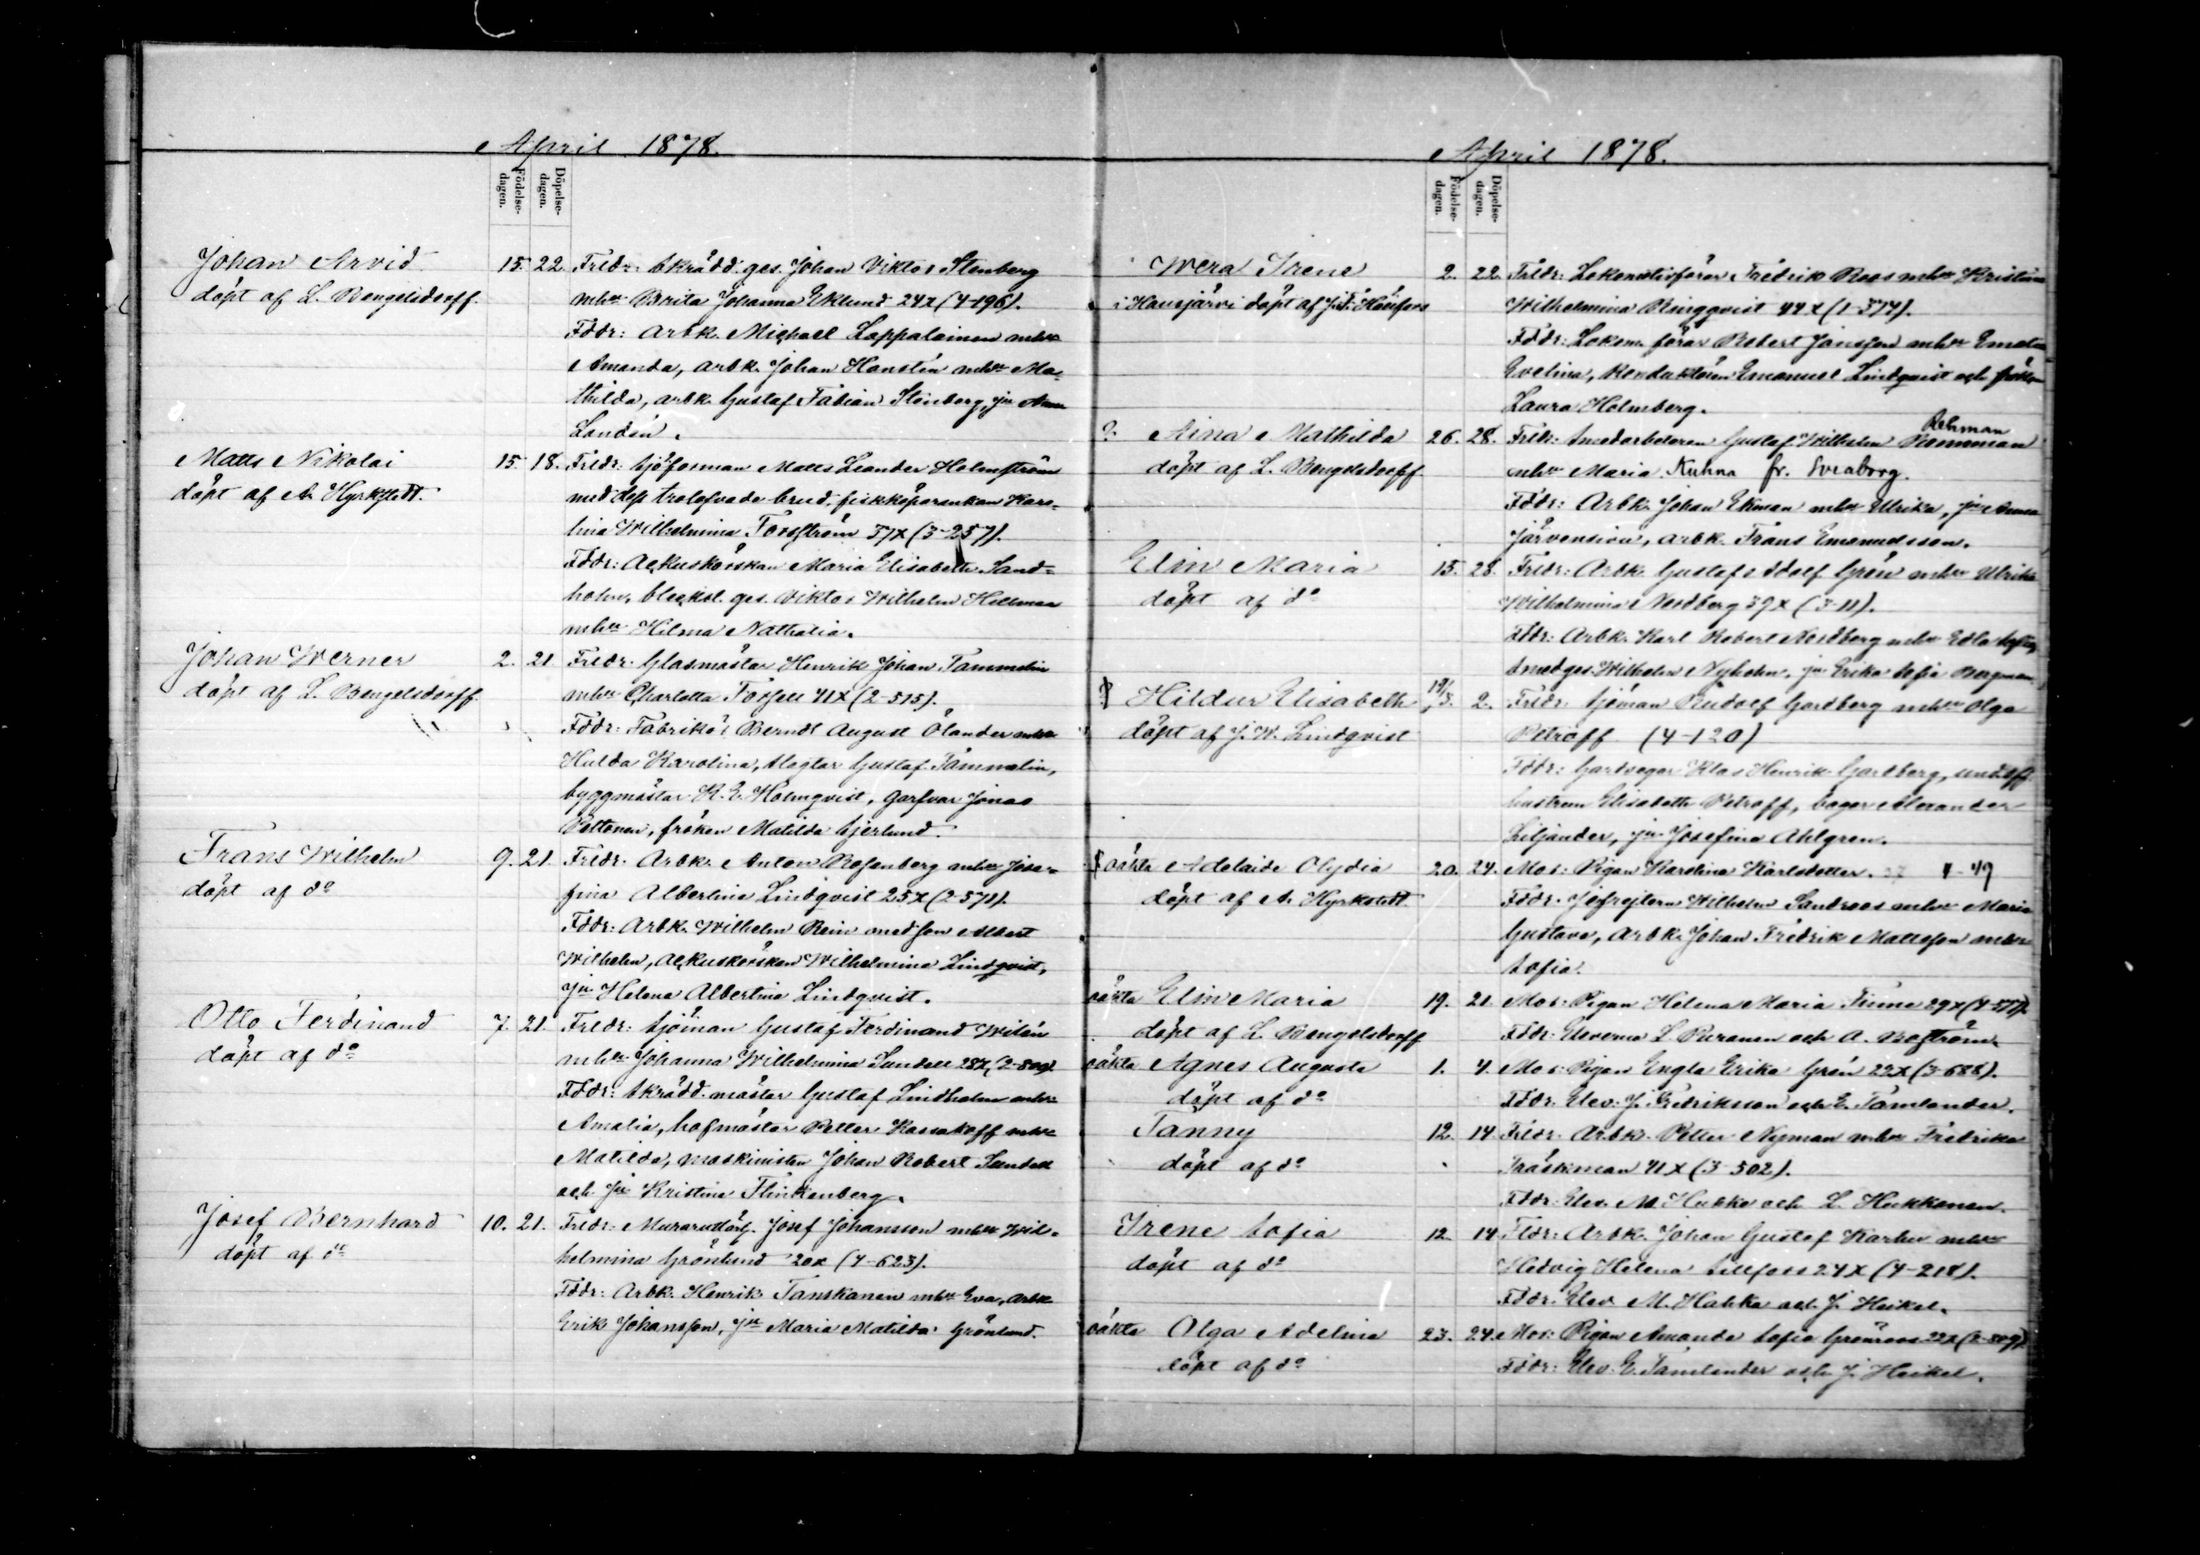 April 1878.
Födelse-
dagen.
Döpelse-
dagen.
Johan Arvid
döpt af L. Bengelsdorff.
15. 22. Frldr: Skrädd. ges. Johan Viktor Stenberg
mhu Brita Johanna Eklund 24x (4-196).
Fddr: Arbk. Michael Lappalainen mhu
Amanda, arbk. Johan Hanstén mhu Ma-
thilda, arbk. Gustaf Fabian Stenberg, jn Anna
Landén.
Matts Nikolai
döpt af A. Hyrkstedt.
15. 18. Frldr: Sjöforman Matts Leander Holmström
med dess trolofvade brud, fiskköparenkan Karo-
lina Wilhelmina Forsström 37x (3-257).
Fddr: Ackuskörskan Maria Elisabeth Sand-
holm, blecksl. ges. Viktor Wilhelm Hellman
mhu Hilma Nathalia.
Johan Werner
döpt af L. Bengelsdorff
2. 21. Frldr: Glasmästar Henrik Johan Tammelin
mhu Charlotta Forsell 41x (2-515).
Fddr: Fabrikör Berndt August Ölander mhu
Hulda Karolina, slagtar Gustaf Tammelin,
byggmästar K. E. Holmqvist, garfvar Jonas
Peltonen, fröken Matilda Sjerlund.
Frans Wilhelm
döpt af do
9. 21. Frldr: Arbk. Anton Rosenberg mhu Jose-
fina Albertina Lindqvist 25x (2-571).
Fddr: Arbk. Wilhelm Rein med son Albert
Wilhelm, ackuskörskan Wilhelmina Lindqvist,
jn Helena Albertina Lindqvist.
Otto Ferdinand
döpt af do
7. 21. Frldr: Sjöman Gustaf Ferdinand Witén
mhu Johanna Wilhelmina Sundell 28x (2-800).
Fddr: Skrädd. mästar Gustaf Lindholm mhu
Amalia, hofmästar Petter Kassakoff mhu
Matilda, maskinisten Johan Robert Sundell
och jn Kristina Flinkenberg.
Josef Bernhard
döpt af do
10. 21. Frldr: Murar Josef Johansson mhu Wil-
helmina Grönlund 20x (4-623).
Fddr: Arbk. Henrik Tanskanen mhu Eva, arbk
Erik Johansson, jn Maria Matilda Grönlund.
April 1878.
Födelse-
dagen.
Döpelse-
dagen.
Wera Irene
i Hausjärvi döpt af
2. 22. Frldr: Lokomotivförar. Fredrik Roos mhu Kristina
Wilhelmina Ringqvist 44x (1-374).
Fddr: Lokom. förar Robert Jansson mhu
Evelina, konduktören Emanuel Lindqvist och fröken
Laura Holmberg.
Aina Mathilda
döpt af L. Bengelsdorff
26. 28. Frldr: Smedarbetaren Gustaf Wilhelm
Rehman
mhu Maria Kuhna fr. Sveaborg.
Fddr: Arbk. Johan Ekman mhu Ulrika, jn Anna
Järvensivu, arbk. Frans Emanuelsson.
Elin Maria
döpt af do
15. 28. Frldr: Arbk. Gustaf Adolf Grén mhu Ulrika
Wilhelmina Nordberg 39x (3-11).
Fddr: Arbk. Karl Robert Nordberg mhu Edla
smedges. Wilhelm Nyholm, jn Erika Sofia Bergman.
Hildur Elisabeth
döpt af J. W. Lindqvist
19/3. 2. Frldr: Sjöman Rudolf Gardberg mhu Olga
Petroff (4-120)
Fddr: Gardvogar Klas Henrik Gardberg, underoff.
hustrun Elisabeth Petroff, bagar Alexander
Liljander, jn Josefina Ahlgren.
oäkta Adelaide Olydia
döpt af A. Hyrkstedt
20. 24. Mor: Pigan Karolina Karlsdotter. 1-49
Fddr: Wilhelm Sandroos mhu Maria
Gustava, arbk. Johan Fredrik Mattsson mhu
Sofia.
oäkta Elin Maria
döpt af L. Bengelsdorff
19. 21. Mor: Pigan Helena Maria
Fddr: Eleverna L. Puranen och A. Boström.
oäkta Agnes Augusta
döpt af do
1. 4. Mor: Pigan Engla Erika Grén 22x (3-688).
Fddr: Elev. J. Fredriksson och E. Tamlander.
Fanny
döpt af do
12. 14. Frldr: Arbk. Petter Nyman mhu Fredrika
Träskman 41x (3-502).
Fddr: Elev. M. Hukka och L. Hukkanen.
Irene Sofia
döpt af do
12. 14. Fldr: Arbk. Johan Gustaf Karlin mhu
Hedvig Helena Sillfors 24x (4-218).
Fddr: Elev M. Hahka och J. Heikel.
oäkta Olga Adelina
döpt af do
23. 24. Mor: Pigan Amanda Sofia Grönroos 22x (2-809)
Fddr: Elev. E. Tamlander och J. Heikel.